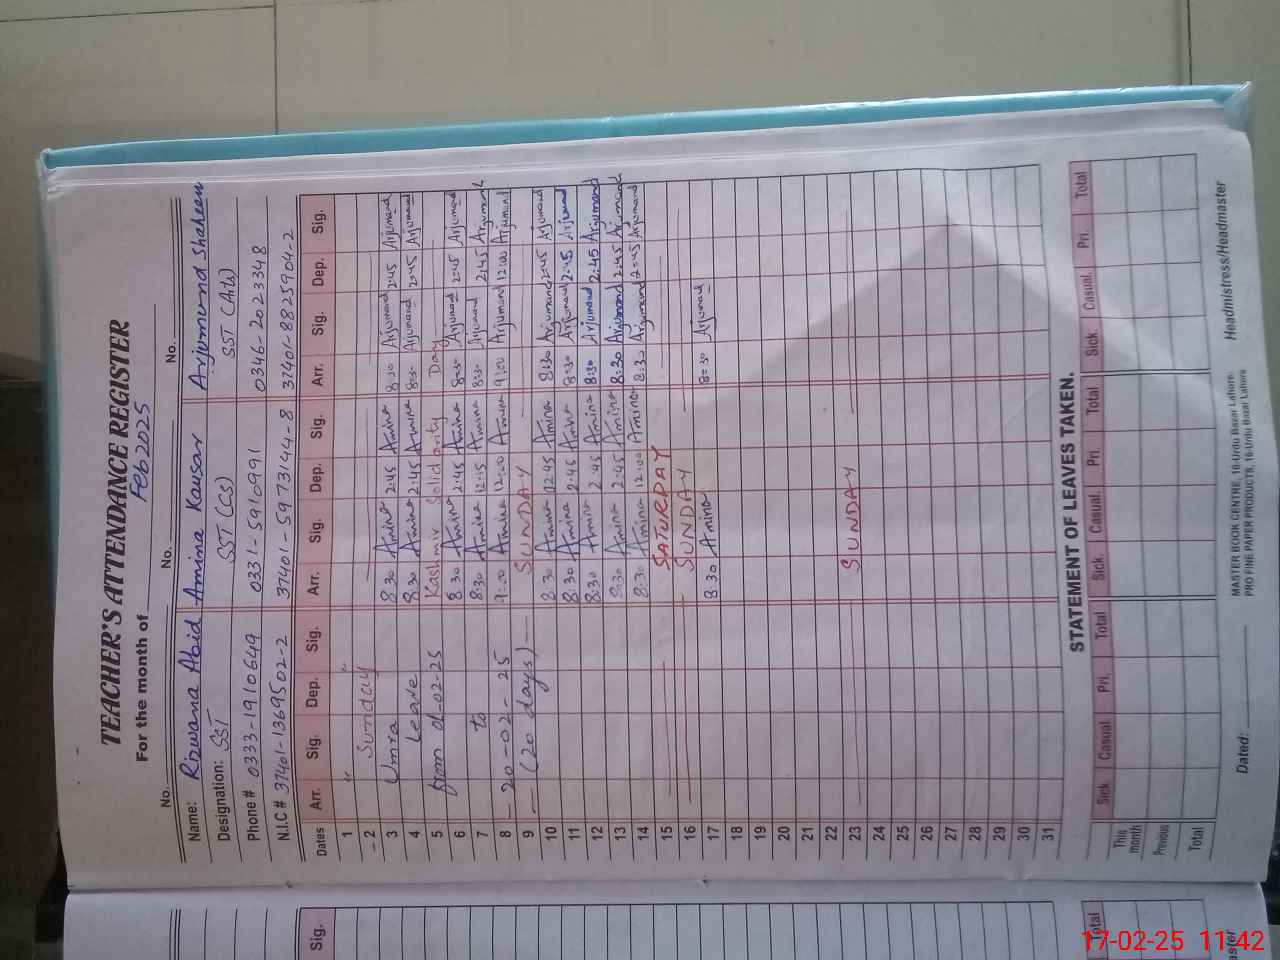 TEACHER'S ATTENDANCE REGISTER
For the month of Feb 2025
No. No. No.
Name: Rizwana Abid Amina Kausar Arjumend Shaheen
Designation: SST SST (CS) SST (Arts)
Phone # 0333-1910649 0331-5910991 0346-2023348
N.I.C # 37401-1369502-2 37401-5973144-8 37401-8825904-2
Dates Arr. Sig. Dep. Sig. Arr. Sig. Dep. Sig. Arr. Sig. Dep. Sig.
1 " "
2 Sunday
3 Umra 8:30 Amina 2:45 Amina 8:30 Arjumand 2:45 Arjumand
4 Leave 8:30 Amina 2:45 Amina 8:30 Arjumand 2:45 Arjumand
5 from 01-02-25 Kashmir Solidarity Day
6 8:30 Amina 2:45 Amina 8:30 Arjumand 2:45 Arjumand
7 to 8:30 Amina 12:15 Amina 8:30 Arjumand 2:45 Arjumand
8 20-02-25 9:00 Amina 12:00 Amina 9:00 Arjumand 12:00 Arjumand
9 (20 days) SUNDAY
10 8:30 Amina 12:45 Amina 8:30 Arjumand 2:45 Arjumand
11 8:30 Amina 2:45 Amina 8:30 Arjumand 2:45 Arjumand
12 8:30 Amina 2:45 Amina 8:30 Arjumand 2:45 Arjumand
13 8:30 Amina 2:45 Amina 8:30 Arjumand 2:45 Arjumand
14 8:30 Amina 12:00 Amina 8:30 Arjumand 2:45 Arjumand
15 SATURDAY
16 SUNDAY
17 8:30 Amina 8:30 Arjumand
18
19
20
21
22
23 SUNDAY
24
25
26
27
28
29
30
31
STATEMENT OF LEAVES TAKEN.
Sick Casual Pri. Total Sick. Casual. Pri. Total Sick Casual. Pri. Total
This month
Previous
Total
MASTER BOOK CENTRE, 16-Urdu Bazar Lahore.
PRO FINE PAPER PRODUCTS, 16-Urdu Bazar Lahore
Dated: Headmistress/Headmaster
Sig.
Total
17-02-25 11:42